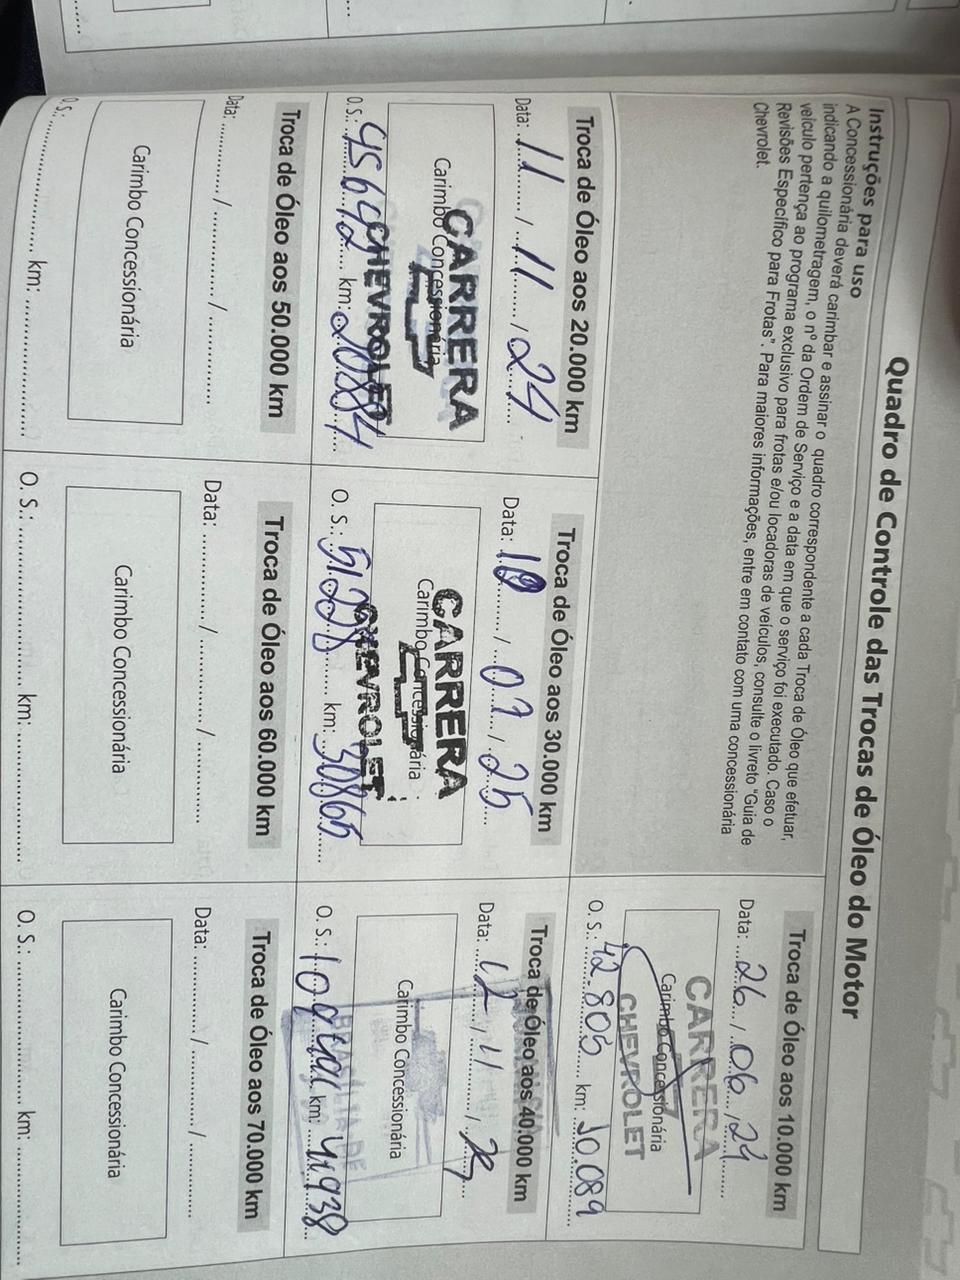 Quadro de Controle das Trocas de Óleo do Motor
Instruções para uso
A Concessionária deverá carimbar e assinar o quadro correspondente a cada Troca de Óleo que efetuar,
indicando a quilometragem, o nº da Ordem de Serviço e a data em que o serviço foi executado. Caso o
veículo pertença ao programa exclusivo para frotas e/ou locadoras de veículos, consulte o livreto "Guia de
Revisões Específico para Frotas". Para maiores informações, entre em contato com uma concessionária
Chevrolet.
Troca de Óleo aos 10.000 km
Data: 26 / 06 / 24
CARRERA
Carimbo Concessionária
CHEVROLET
O. S.: 42.805 km: 10.089
Troca de Óleo aos 20.000 km
Data: 11 / 11 / 24
CARRERA
Carimbo Concessionária
CHEVROLET
O. S.: km: 20884
Troca de Óleo aos 30.000 km
Data: 10 / 07 / 25
CARRERA
Carimbo Concessionária
CHEVROLET
O. S.: 51.228 km: 30865
Troca de Óleo aos 40.000 km
Data: 12 / 11 /
Carimbo Concessionária
O. S.: km: 41938
Troca de Óleo aos 50.000 km
Data: / /
Carimbo Concessionária
O. S.: km:
Troca de Óleo aos 60.000 km
Data: / /
Carimbo Concessionária
O. S.: km:
Troca de Óleo aos 70.000 km
Data: / /
Carimbo Concessionária
O. S.: km: